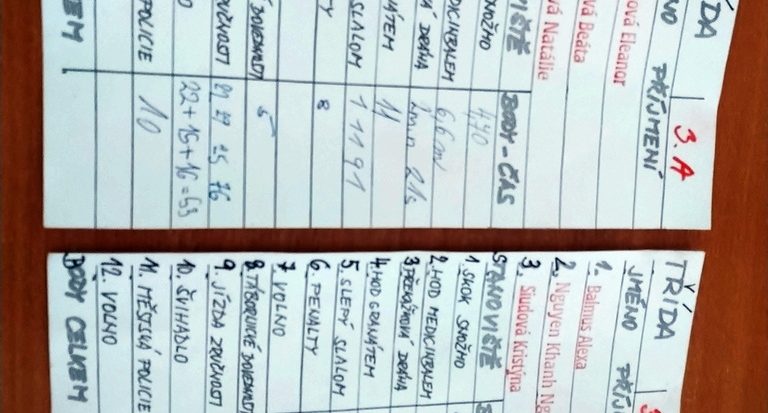 ŘÍDA 3.A
NO PŘÍJMENÍ
ová Eleanor
vá Beáta
vá Natálie
VIŠTĚ BODY - ČAS
SKOŽMO 4,40
EDICINBALEM 6,6m
Á DRÁHA 2min 21s
ÁTEM 11
SLALOM 1 1 1 9 1
TY 8
DOVEDNOSTI 5
RUČNOSTI
O 22+15+16=53
POLICIE 10
EM
TŘÍDA 3.
JMÉNO PŘÍJ
1. Balmus Alexa
2. Nguyen Khanh Ng
3. Siudová Kristýna
STANOVIŠTĚ B
1. SKOK SKOŽMO
2. HOD MEDICINBALEM
3. PŘEKÁŽKOVÁ DRÁHA
4. HOD GRANÁTEM
5. SLEPÝ SLALOM
6. PENALTY
7. VOLNO
8. TÁBORNICKÉ DOVEDNOSTI
9. JÍZDA ZRUČNOSTI
10. ŠVIHADLO
11. MĚSTSKÁ POLICIE
12. VOLNO
BODY CELKEM